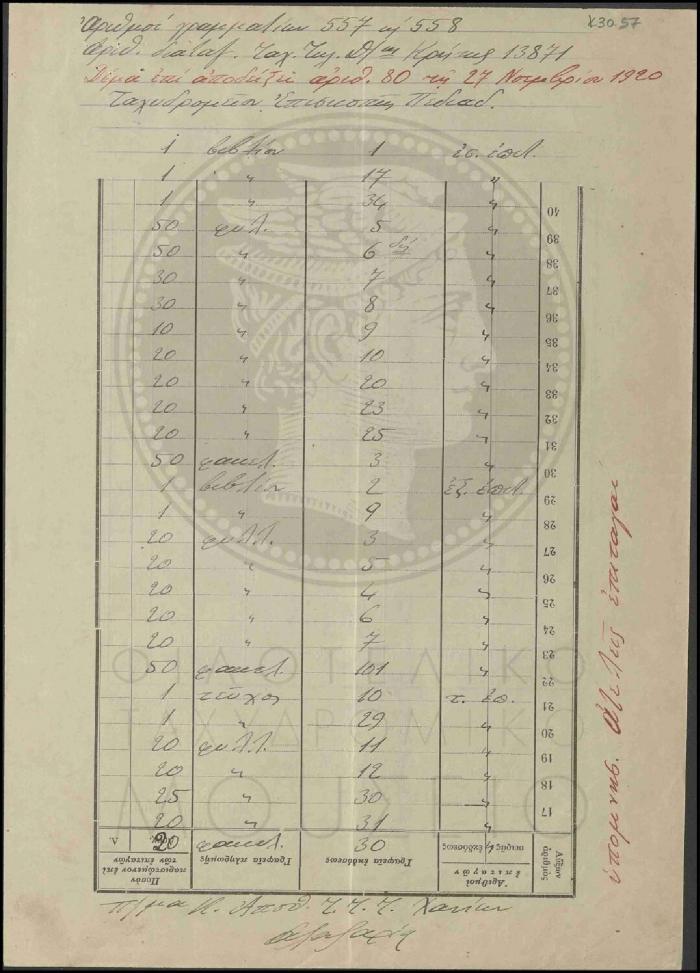 Κ30.57
Ἀριθμοί γραμματίων 557 ἢ 558
Ἀριθ. διαταγ. Ταχ. Τηλ. Δ/σεως Κρήτης 13871
Δέμα ἐπί ἀποδείξει ἀριθ. 80 τῇ 27 Νοεμβρίου 1920
Ταχυδρομεῖον Ἐπισκοπῆς Πεδιάδ.
1 βιβλίον 1 ἐσ. ἐπιτ.
1 " 17 "
1 " 34 "
50 φύλ. 5 "
50 " 6 "
30 " 7 "
30 " 8 "
10 " 9 "
20 " 10 "
20 " 20 "
20 " 23 "
20 " 25 "
50 φακελ. 3 "
1 βιβλίον 2 ἐξ. ἐπιτ.
1 " 9 "
20 φύλλ. 3 "
20 " 5 "
20 " 4 "
20 " 6 "
20 " 7 "
50 φακελ. 101 "
1 τεῦχος 10 τ. ἐπ.
1 " 29 "
20 φύλλ. 11 "
20 " 12 "
25 " 30 "
20 " 31 "
20 φακελ. 30 "
40
39
38
37
36
35
34
33
32
31
30
29
28
27
26
25
24
23
22
21
20
19
18
17
Αὔξων ἀριθμός
Ἀριθμοί ἐπιταγῶν
σειρᾶς ἐκδόσεως
Γραφεῖα ἐκδόσεως
Γραφεῖα πληρωμῆς
Ποσόν παριστώμενον ἐπί τῶν ἐπιταγῶν
Λ.
Τμῆμα Κ. Ἀποθ. Τ.Τ.Τ. Χανίων
ἐπιταγαί
ΦΙΛΟΤΕΛΙΚΟ
ΤΑΧΥΔΡΟΜΙΚΟ
ΜΟΥΣΕΙΟ